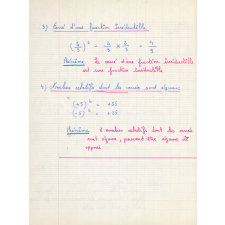 3) Carré d'une fraction irréductible
(2/3)² = 2/3 × 2/3 = 4/9
Théorème Le carré d'une fraction irréductible
est une fraction irréductible
4) Nombres relatifs dont les carrés sont égaux
(+5)² = +25
(-5)² = +25
Théorème 2 nombres relatifs dont les carrés
sont égaux, peuvent être égaux et
opposés